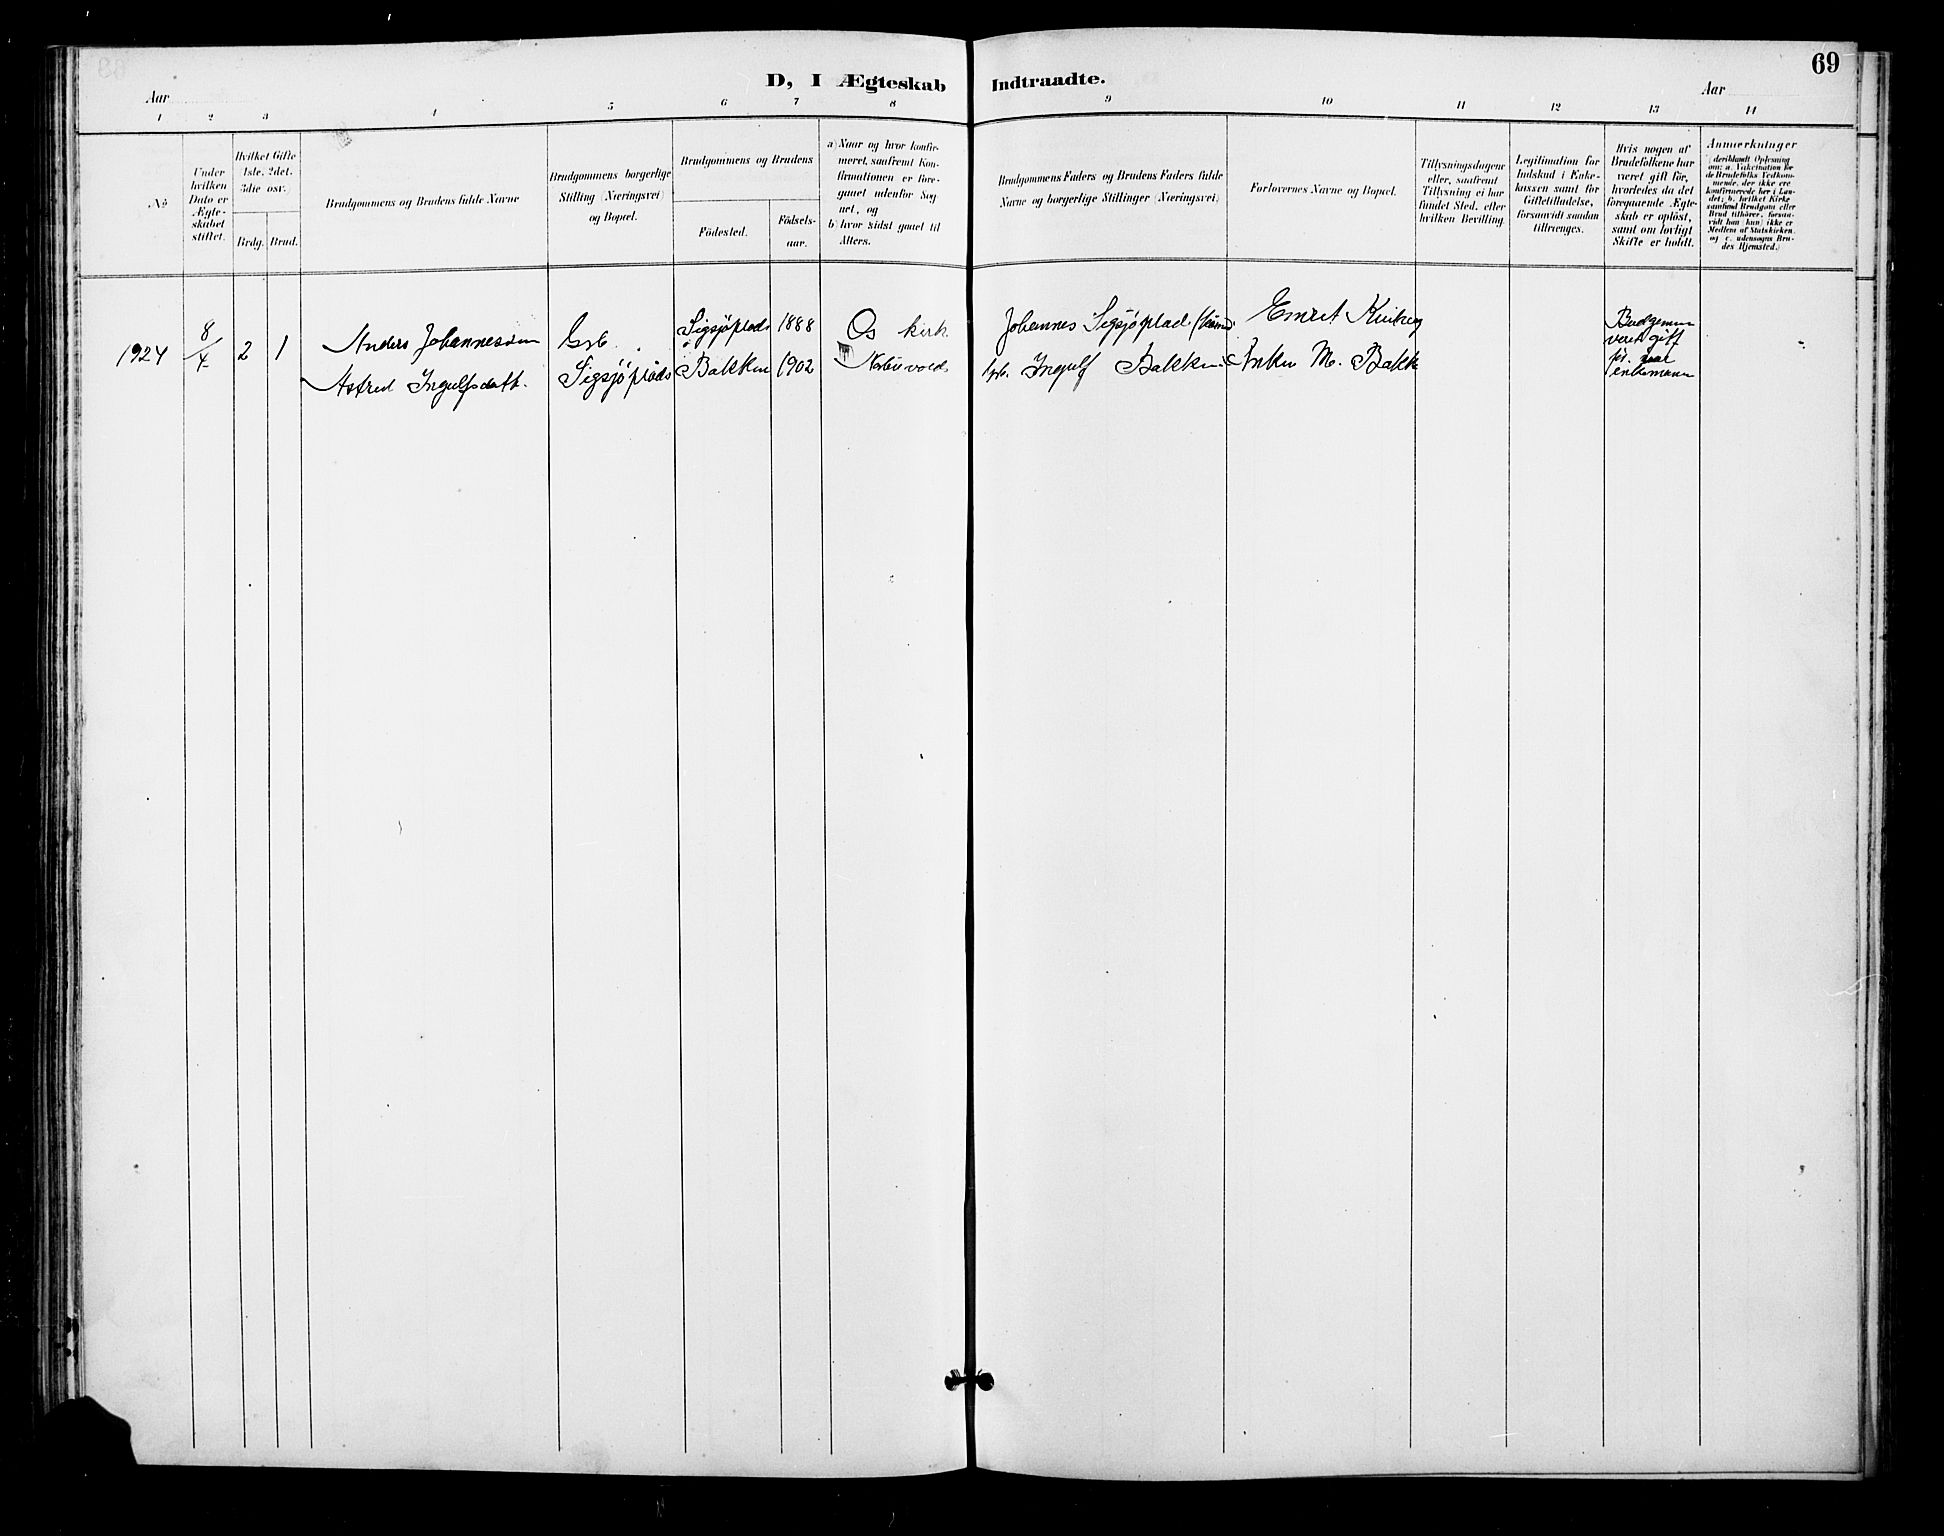 69
D, I Ægteskab Indtraadte.
Aar
Aar
1 2 3 4 5 6 7 8 9 10 11 12 13 14
No
Under
hvilken
Dato er
Ægte-
skabet
stiftet.
Hvilket Gifte
1ste, 2det,
3die osv.)
Brdg. Brud.
Brudgommens og Brudens fulde Navne
Brudgommens borgerlige
Stilling (Næringsvei)
og Bopæl.
Brudgommens og Brudens
Födested.
Födsels-
aar.
a) Naar og hvor konfir-
meret, saafremt Kon-
firmationen er fore-
gaaet udenfor Sog-
net, og
b) hvor sidst gaaet til
Alters.
Brudgommens Faders og Brudens Faders fulde
Navne og borgerlige Stillinger (Næringsvei)
Forlovernes Navne og Bopæl.
Tillysningsdagene
eller, saafremt
Tillysning ei har
fundet Sted, efter
hvilken Bevilling
Legitimation for
Indskud i Enke-
kassen samt for
Giftetilladelse,
forsaavidt saadan
tiltrænges.
Hvis nogen af
Brudefolkene har
været gift för,
hvorledes da det
foregaaende Ægte-
skab er oplöst,
samt om lovligt
Skifte er holdt.
Anmærkninger
(deriblandt Oplysning
om: a. Vakcination for
de Brudefolks Vedkom-
mende, der ikke ere
konfirmerede her i Lan-
det; b. hvilket Kirke
samfund Brudgom eller
Brud tilhörer, forsaa-
vidt han (hun) ikke er
Medlem af Statskirken,
og c. udensogns Bru-
des Hjemsted.)
1924 8/4 2 1
Anders Johannessen
Astrid Ingulfsdatt.
Sigsjöplads
Sigsjöplads 1888
Bakken 1902
Os kirk
Johannes Sigsjöplad
Ingulf Bakken
Emret
M. Bakk
Brudgommen
gift
för. var
enkemann